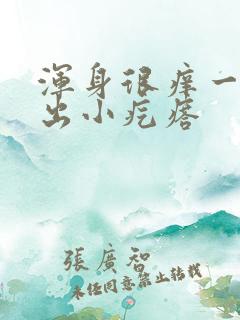 渾身很癢一
出小疙瘩
張廣智
未經同意禁止轉載